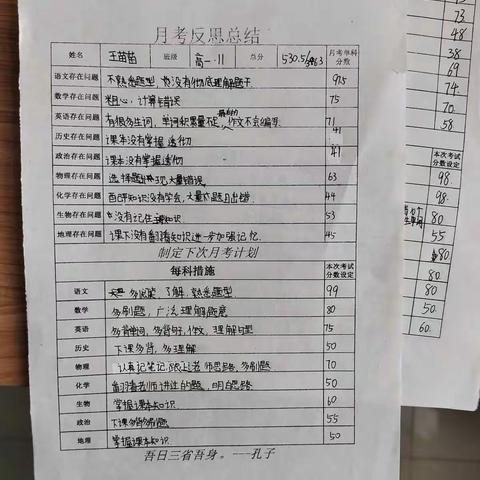 月考反思总结
姓名 王苗苗 班级 高一·11 总分 530.5 月考单科分数
语文存在问题 不熟悉题型，没有彻底理解题干 97.5
数学存在问题 粗心，计算错误 75
英语存在问题 有很多生词，单词积累量不足，作文不会写 71
历史存在问题 课本没有掌握透彻 41
政治存在问题 课本没有掌握透彻 41
物理存在问题 选择题出现大量错误 63
化学存在问题 知识没有学会，大量题目出错 44
生物存在问题 没有记住知识 53
地理存在问题 课下没有翻看知识进一步加强记忆 45
制定下次月考计划
每科措施 本次考试分数设定
语文 多阅读，了解，熟悉题型 99
数学 多刷题，广泛理解题意 80
英语 多背单词，多背句，作文，理解句型 75
历史 下课多背，多理解 50
物理 认真记笔记，跟上老师思路，多刷题 70
化学 翻看老师讲过的题，明白思路 50
生物 掌握课本知识 60
政治 下课多背多刷题 55
地理 掌握课本知识 50
吾日三省吾身。---孔子
73
48
38
69
74
70
58
本次考试分数设定
98
98
80
55
80
80
80
50
60